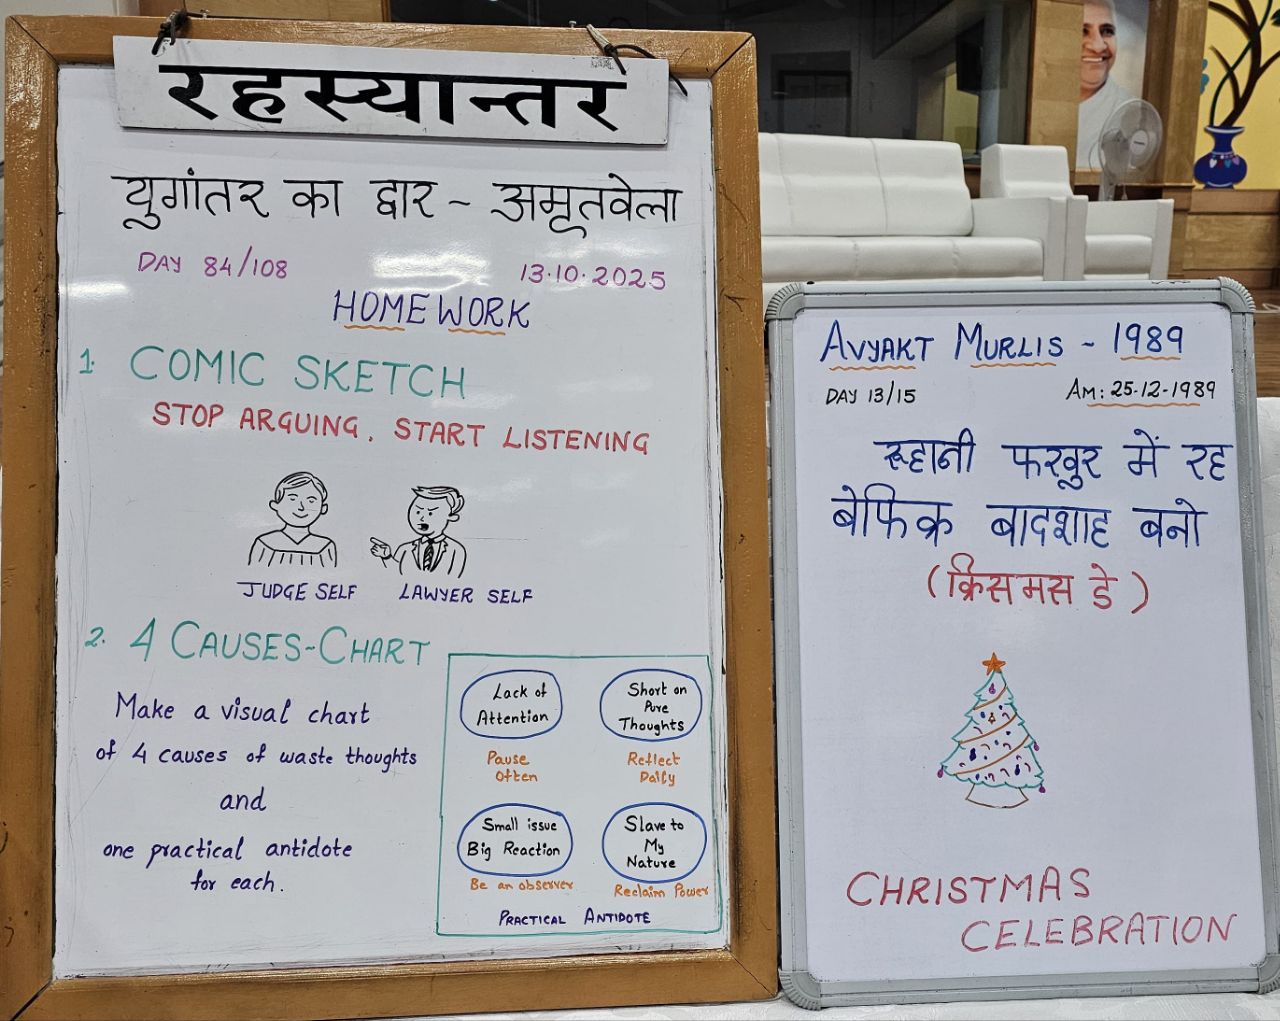 रहस्यान्तर
युगांतर का द्वार - अमृतवेला
DAY 84/108
13.10.2025
HOMEWORK
1. COMIC SKETCH
STOP ARGUING, START LISTENING
JUDGE SELF
LAWYER SELF
2. 4 CAUSES-CHART
Make a visual chart
of 4 causes of waste thoughts
and
one practical antidote
for each.
Lack of
Attention
Pause
Often
Short on
Pure
Thoughts
Reflect
Daily
Small issue
Big Reaction
Be an observer
Slave to
My
Nature
Reclaim Power
PRACTICAL ANTIDOTE
AVYAKT MURLIS - 1989
DAY 13/15
AM: 25-12-1989
रूहानी फखुर में रह
बेफिक्र बादशाह बनो
(क्रिसमस डे)
CHRISTMAS
CELEBRATION